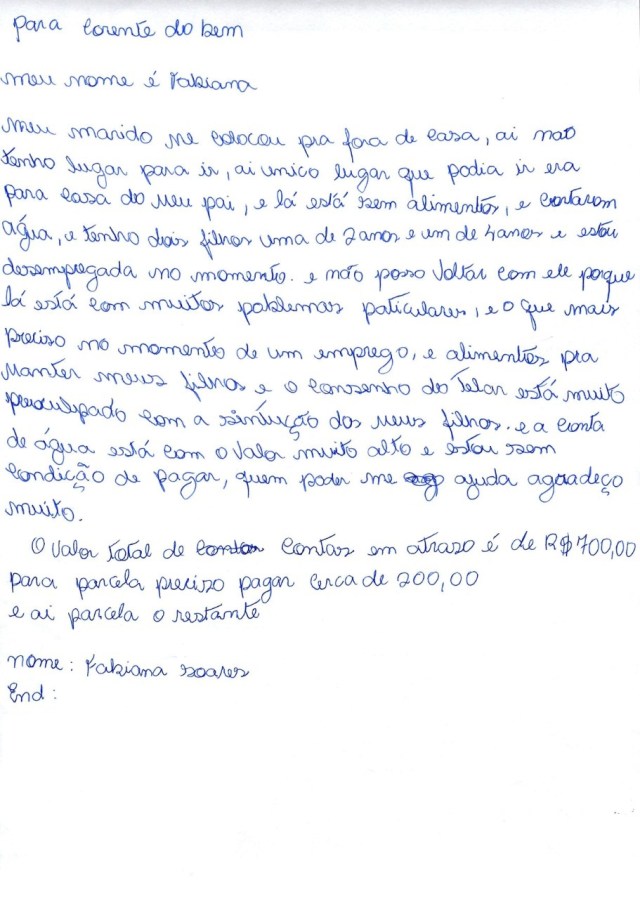 para corente do bem
meu nome é Fabiana
Meu marido me colocou pra fora de casa, ai nao
tenho lugar para ir, ai unico lugar que podia ir era
para casa do meu pai, e lá está sem alimentos, e cortaram
água, e tenho dois filhos uma de 2 anos e um de 4 anos e estou
desempregada no momento. e não posso voltar com ele poque
lá está com muitos poblemas paticulares, e o que mais
preciso no momento de um emprego, e alimentos pra
manter meus filhos e o consenho do telar está muito
preoculpado com a sintução dos meus filhos. e a conta
de água está com o valor muito alto e estou sem
condição de pagar, quem poder me ajuda agradeço
muito.
O valor total de contas em atrazo é de R$ 700,00
para parcela precizo pagar cerca de 200,00
e ai parcela o restante
nome: Fabiana soares
End: